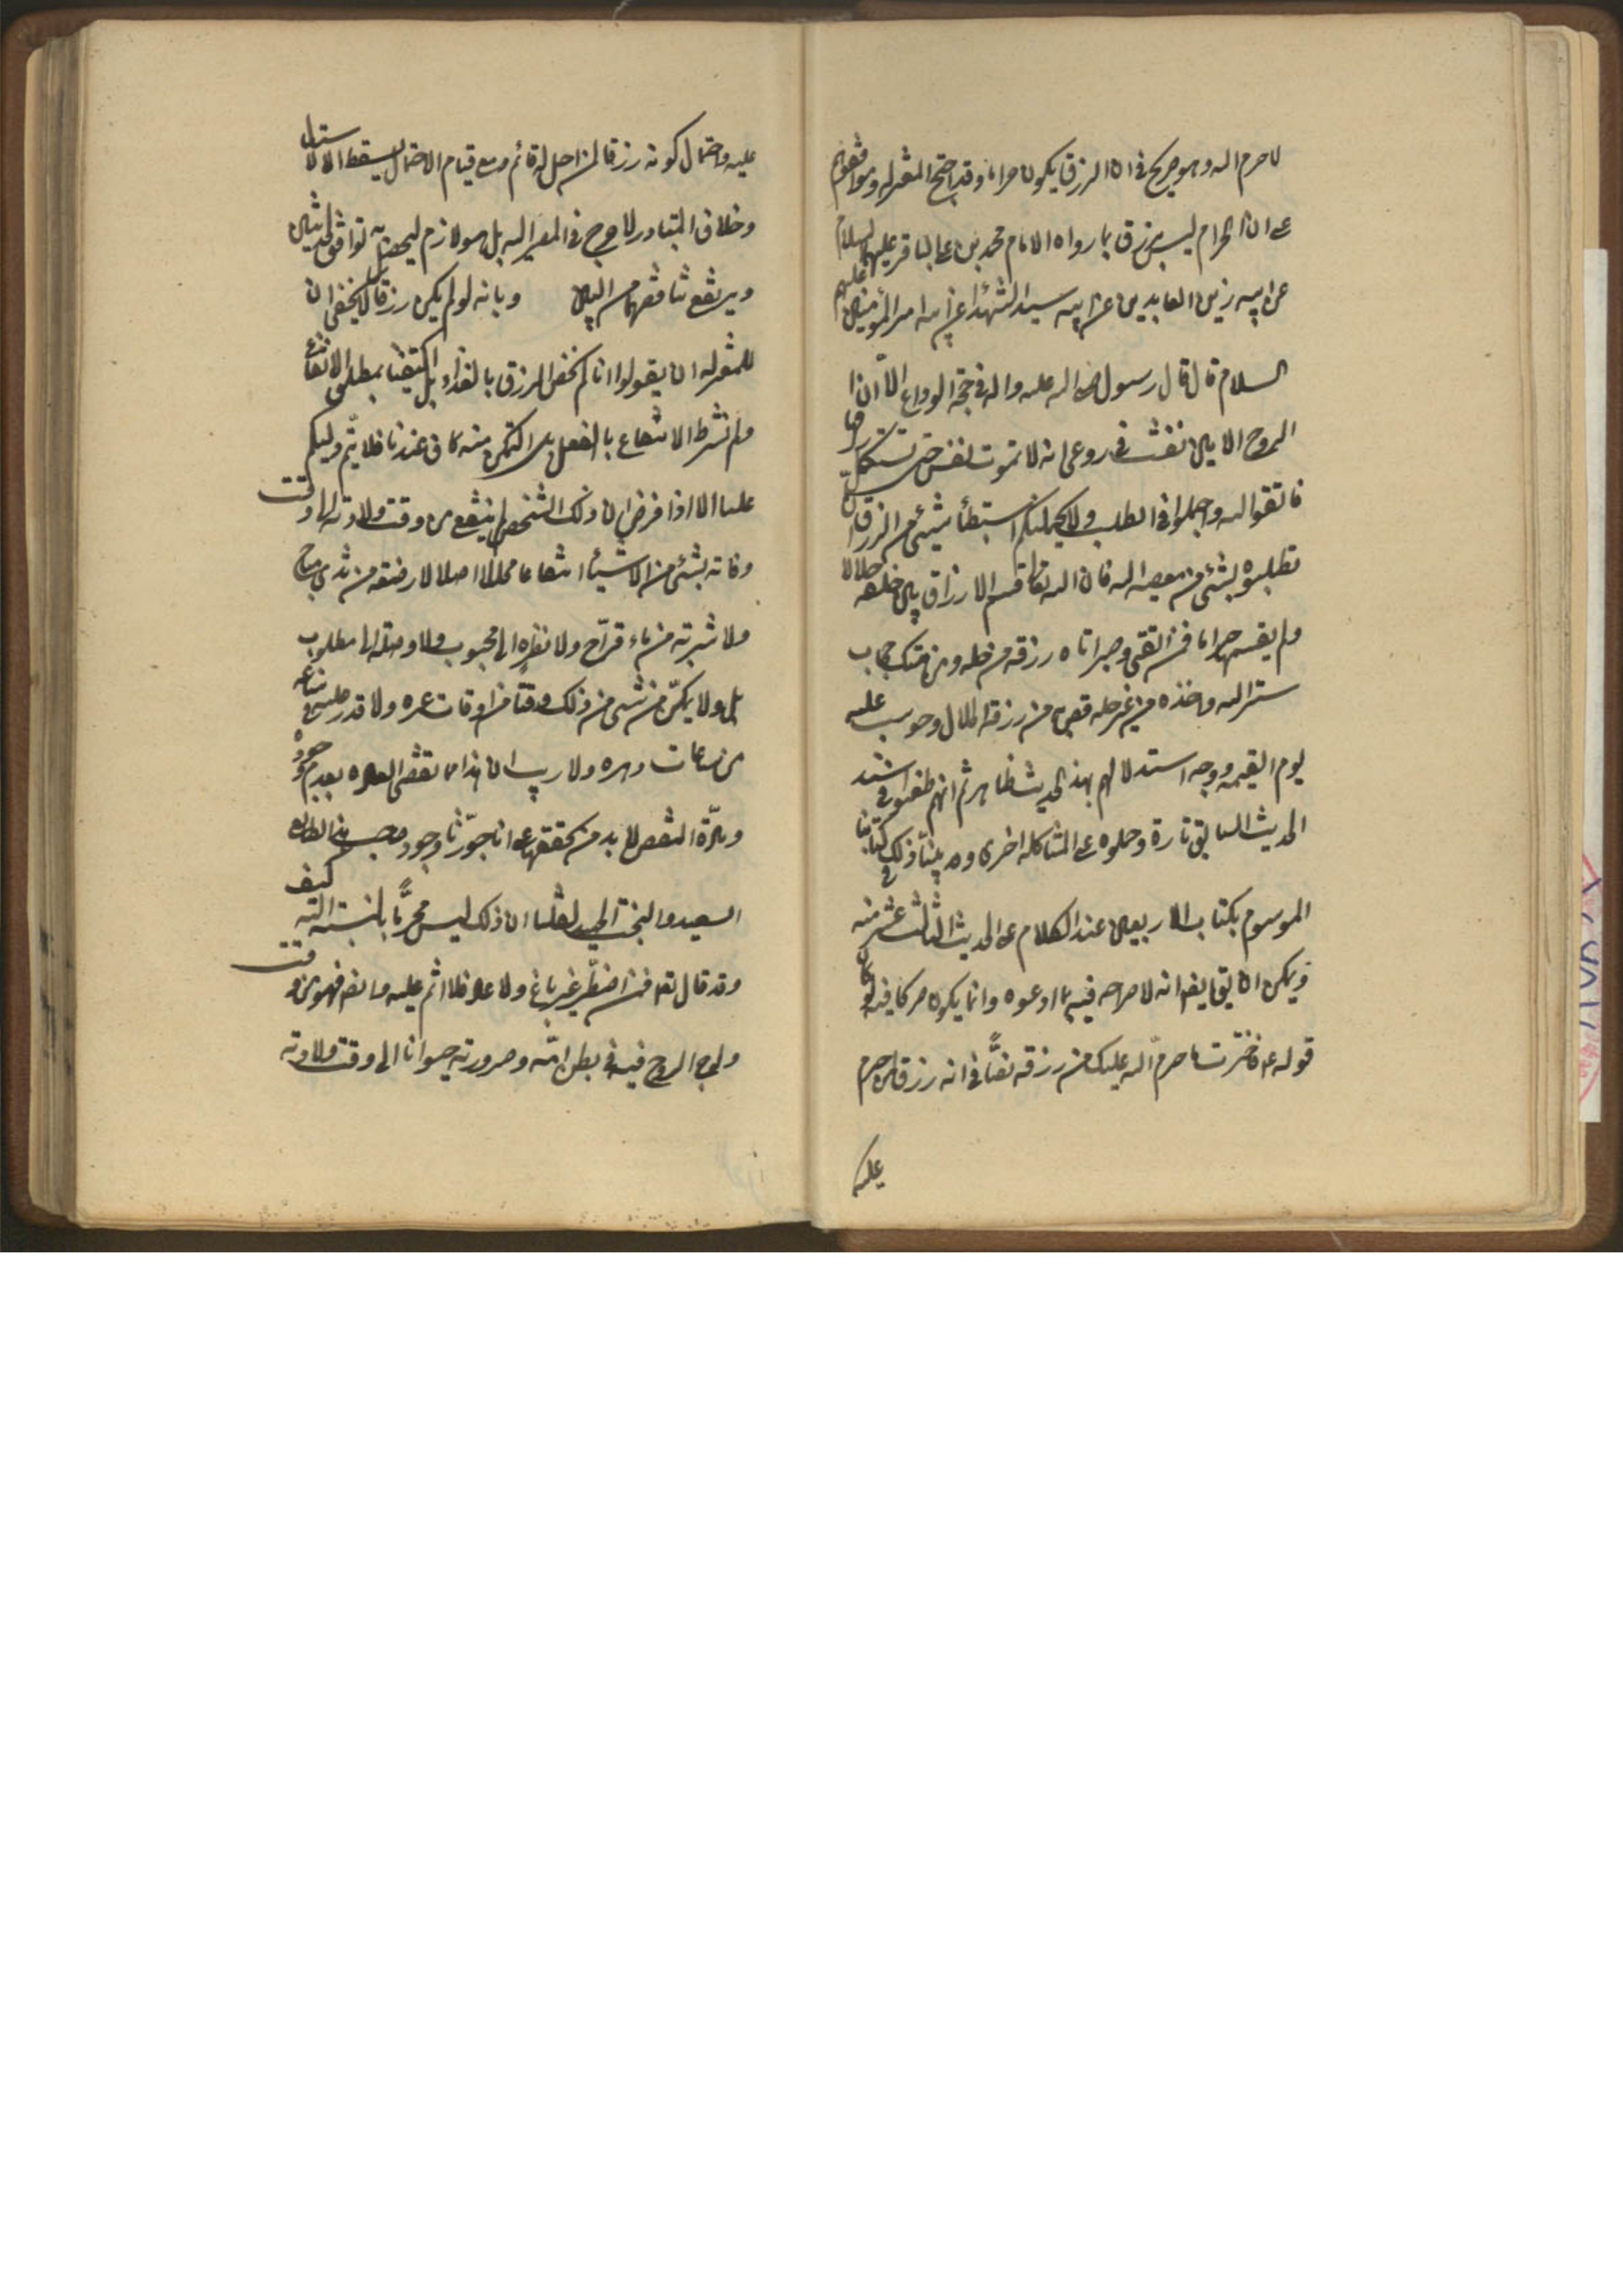 لا حرم الله وهو صريح فى ان الرزق يكون حراما وقد احتج المعتزله وموافقوهم
على ان الحرام ليس برزق بما رواه الامام محمد بن على الباقر عليهما السلام
عن ابيه زين العابدين عن ابيه سيد الشهداء عن ابيه امير المؤمنين عليهم
السلام قال قال رسول الله صلى الله عليه واله فى حجة الوداع الا ان
الروح الامين نفث فى روعى انه لا تموت نفس حتى تستكمل رزقها
فاتقوا الله واجملوا فى الطلب ولا يحملنكم استبطأ شيئ من الرزق ان
تطلبوه بشئ من معصيه الله فان الله تعالى قسم الارزاق بين خلقه حلالا
ولم يقسمها حراما فمن اتقى وصبر اتاه رزقه من حله ومن هتك حجاب
ستر الله واخذه من غير حله قص به من رزقه الحلال وحوسب عليه
يوم القيمه ووجه استدلالهم بهذا الحديث ظاهر ثم انهم طعنوا فى سند
الحديث السابق تارة وحملوه على المشاكله اخرى وقد بينا ذلك فى كتابنا
الموسوم بكتاب الاربعين عند الكلام على الحديث الثالث عشر منه
ويمكن ان يق ايضا انه لا صراحه فيه بما ادعوه وانما يكون صريحا فيه لو كان
قوله ع فاخترت ما حرم الله عليك من رزقه نصًّا فى انه رزق لمن حرم
عليه
عليه واحتمال كونه رزقا لمن احل له قائم ومع قيام الاحتمال يسقط الاستدلال
وخلاف المتبادر لا حرج فى المصير اليه بل هو لازم ليحصل به توافق الحديثين
ويرتفع تناقضهما من البين وبانه لو لم يكن رزقا لا يخفى ان
للمعتزله ان يقولوا انا لم نخص الرزق بالغذاء بل اكتفينا بمطلق الانتفاع
ولم نشترط الانتفاع بالفعل بل التمكن منه كاف عندنا فلا يتم دليلكم
علينا الا اذا فرض ان ذلك الشخص لم ينتفع من وقت ولادته الى وقت
وفاته بشئ من الاشياء انتفاعا محللا اصلا لا رضعه من ثدى مباح
ولا شربه من ماء قراح ولا نظره الى محبوب ولا وصله الى مطلوب
بل ولا يمكن من شئ من ذلك وقتا من اوقات عمره ولا قدر عليه فى ساعه
من ساعات دهره ولا ريب ان هذا مما تقضى العاده بعدم وجوده
ومادة النقض لا بد من تحققها على انا لو جوزنا وجود صاحب هذا الطالع
السعيد والبخت الحميد لقلنا ان ذلك ليس محرّما بالنسبة اليه كيف
وقد قال تعالى فمن اضطر غير باغ ولا عاد فلا اثم عليه وايضا فهو من وقت
ولوج الروح فيه فى بطن امّه وصيرورته حيوانا الى وقت ولادته